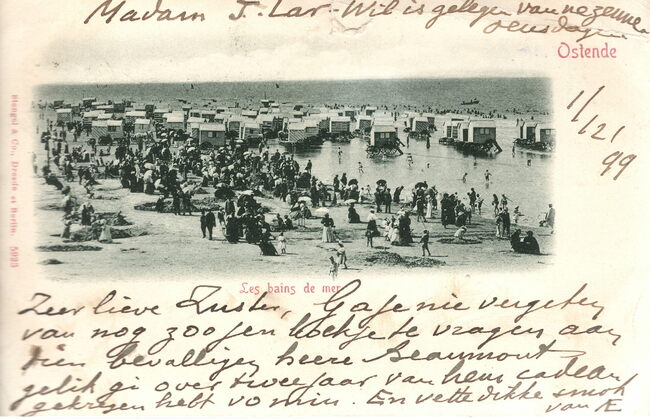 Madam J. Lar - Wil is gelegen van nezenne
densdagen
Ostende
1/12/99
Stengel & Co., Dresde et Berlin. 5923
Les bains de mer
Zeer lieve Zuster, Ga je nie vergeten
van nog zoo jen boekje te vragen aan
dien bevalligen heere Beaumont
gelik gi over twee jaar van hem cadeau
gekregen hebt vo min. En vette dikke smok
van E